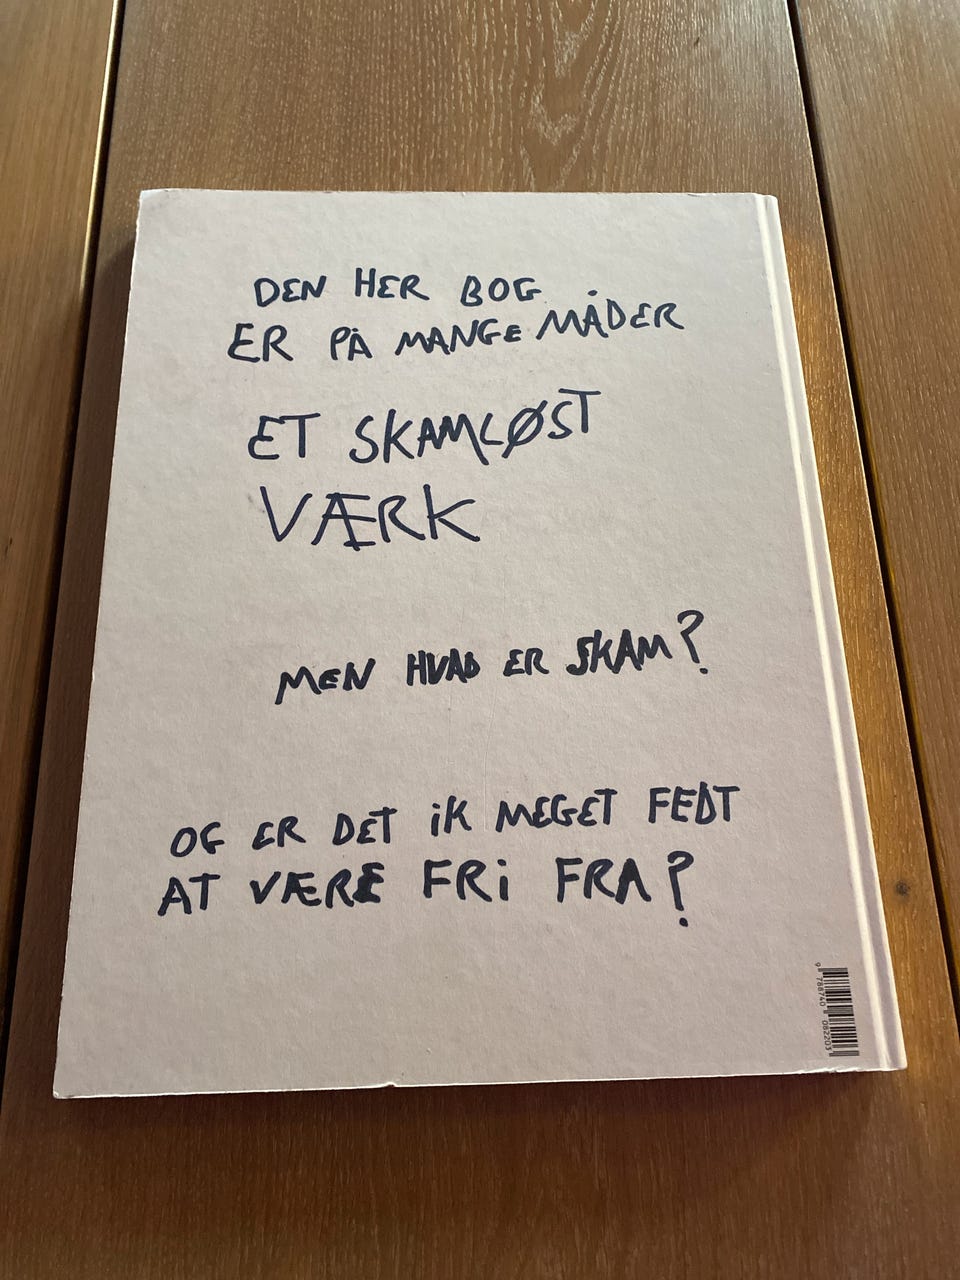 DEN HER BOG
ER PÅ MANGE MÅDER
ET SKAMLØST
VÆRK
MEN HVAD ER SKAM?
OG ER DET iK MEGET FEDT
AT VÆRE FRi FRA?
9 788740 082203